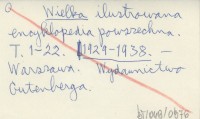 Wielka ilustrowana
encyklopedia powszechna.
T. 1-22. 1929-1938. -
Warszawa. Wydawnictwo
Gutenberga.